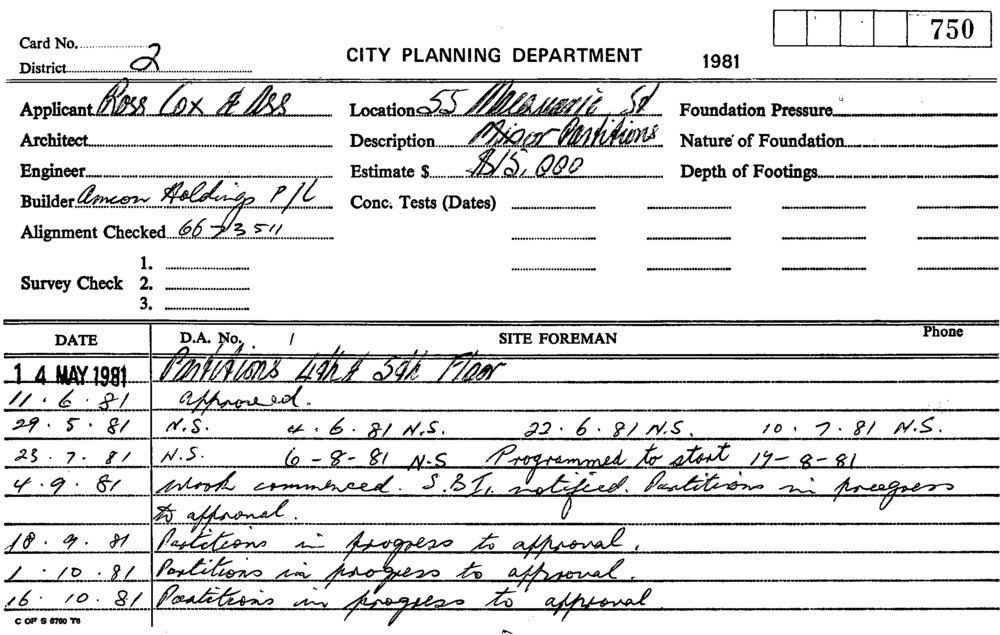 750
Card No.
District 2
CITY PLANNING DEPARTMENT 1981
Applicant Ross Cox & Ass Location 55 Macquarie St Foundation Pressure
Architect Description Minor Partitions Nature of Foundation
Engineer Estimate $ $15,000 Depth of Footings
Builder Amcon Holdings P/L Conc. Tests (Dates)
Alignment Checked 66-3511
1.
Survey Check 2.
3.
DATE D.A. No. SITE FOREMAN Phone
14 MAY 1981 Partitions 4th & 5th Floor
11.6.81 approved.
29.5.81 N.S. 4.6.81 N.S. 22.6.81 N.S. 10.7.81 N.S.
23.7.81 N.S. 6-8-81 N.S Programmed to start 17-8-81
4.9.81 work commenced. S.B.I. notified. Partitions in progress
to approval.
18.9.81 Partitions in progress to approval.
1.10.81 Partitions in progress to approval.
16.10.81 Partitions in progress to approval
C OF S 6760 T6